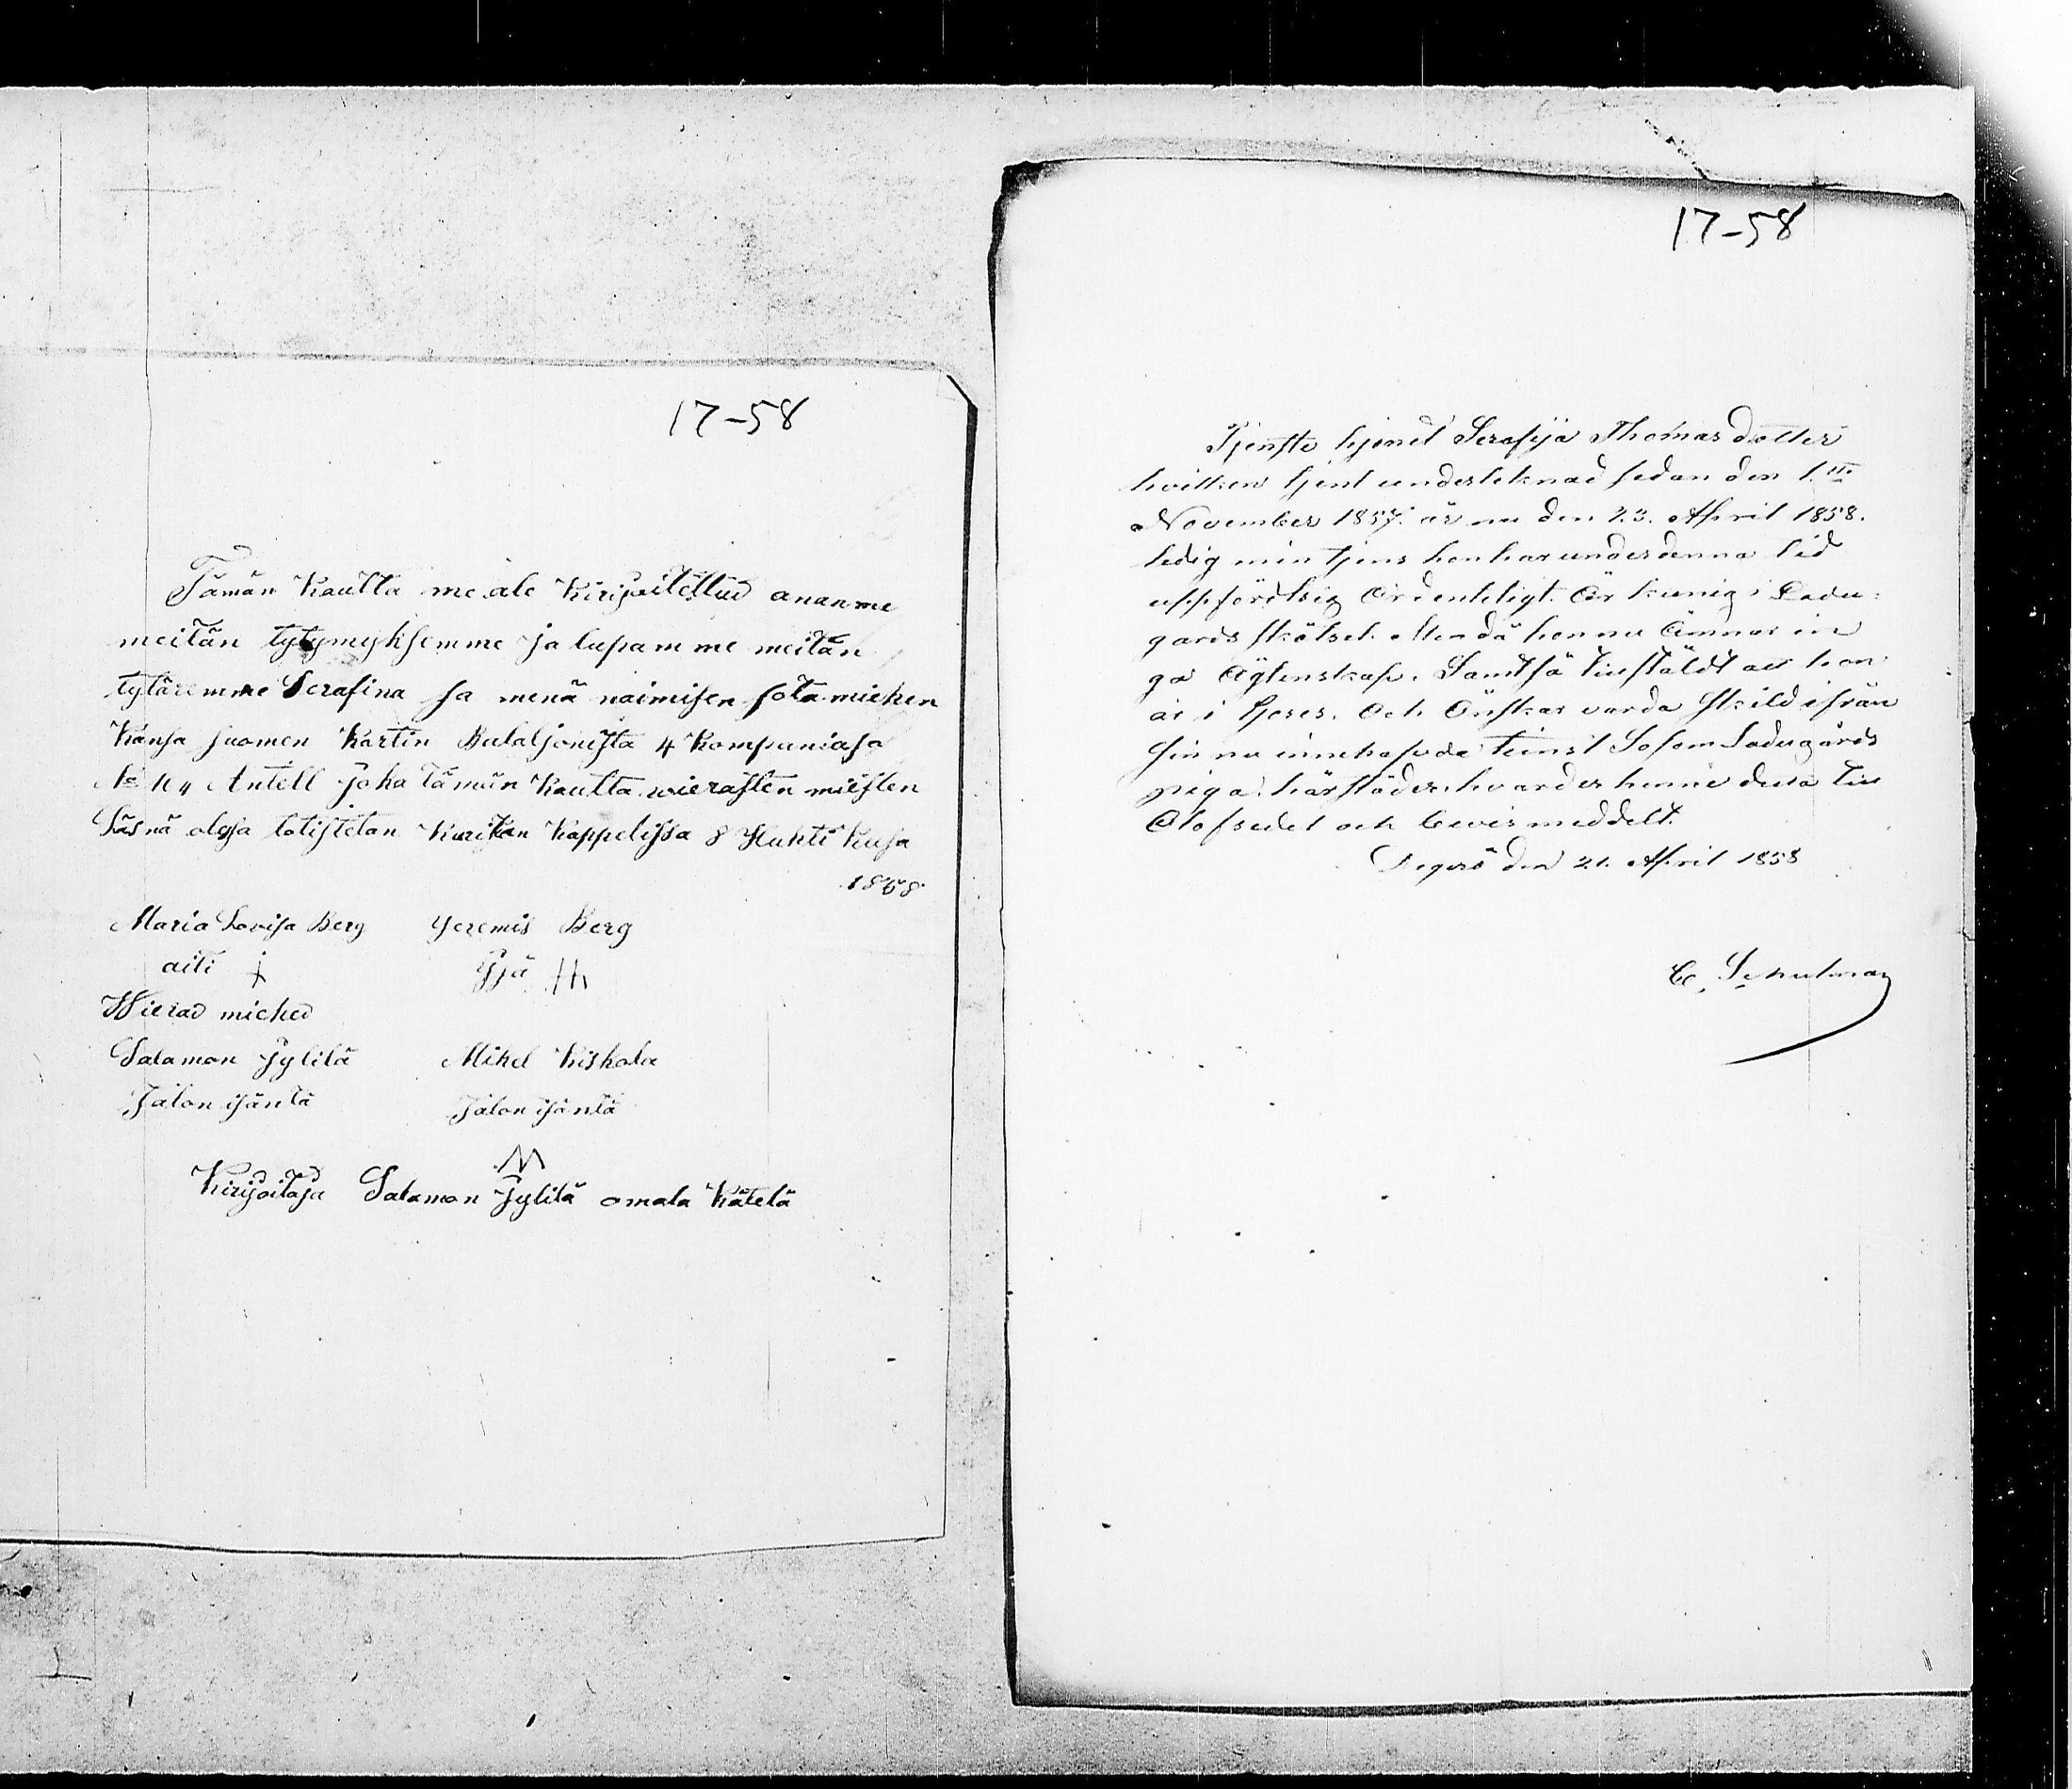 17-58
Tämän Kautta me ale Kirijoitettud ananme
meitän tytymyksemme ja lupamme meitän
tytäremme Serafina ja menä naimisen sotamiehen
Kansa suomen Kartin Bataljonista 4 Kompaniasa
Antell joka tämän Kautta wierasten miesten
Läsnä olesa totistetan Kurikan Kappelissa 8 Huhti Kusa
1858
Maria Lovisa Berg Yeremis Berg
aiti Yjä
Wierad miehed
Salamon Jylitä Mihel Kiskola
Talon isäntä Talon isäntä
Kirijoitaja Salamon Jylitä omala Kätelä
17-58
Tjenste hjonet Serafija Thomas dotter
hvilken tjent underteknad sedan den 1.
November 1857. är nu den 23. April 1858.
ledig min tjens hon har under denna tid
uppfördt sig Ordentligt. Är kunig i Ladu:
gards skötsel. Men då hon nu Ämnar in
gå Ägtenskap. Samt så tilstäldt att hon
är i Och Önskar varda skild ifrån
sin nu innehafvda teinst Såsom Ladugårds
piga. härstädes. hvarder henne detta till
Olofsedel och bevis meddelt.
Degerö den 21. April 1858
C. Schulman